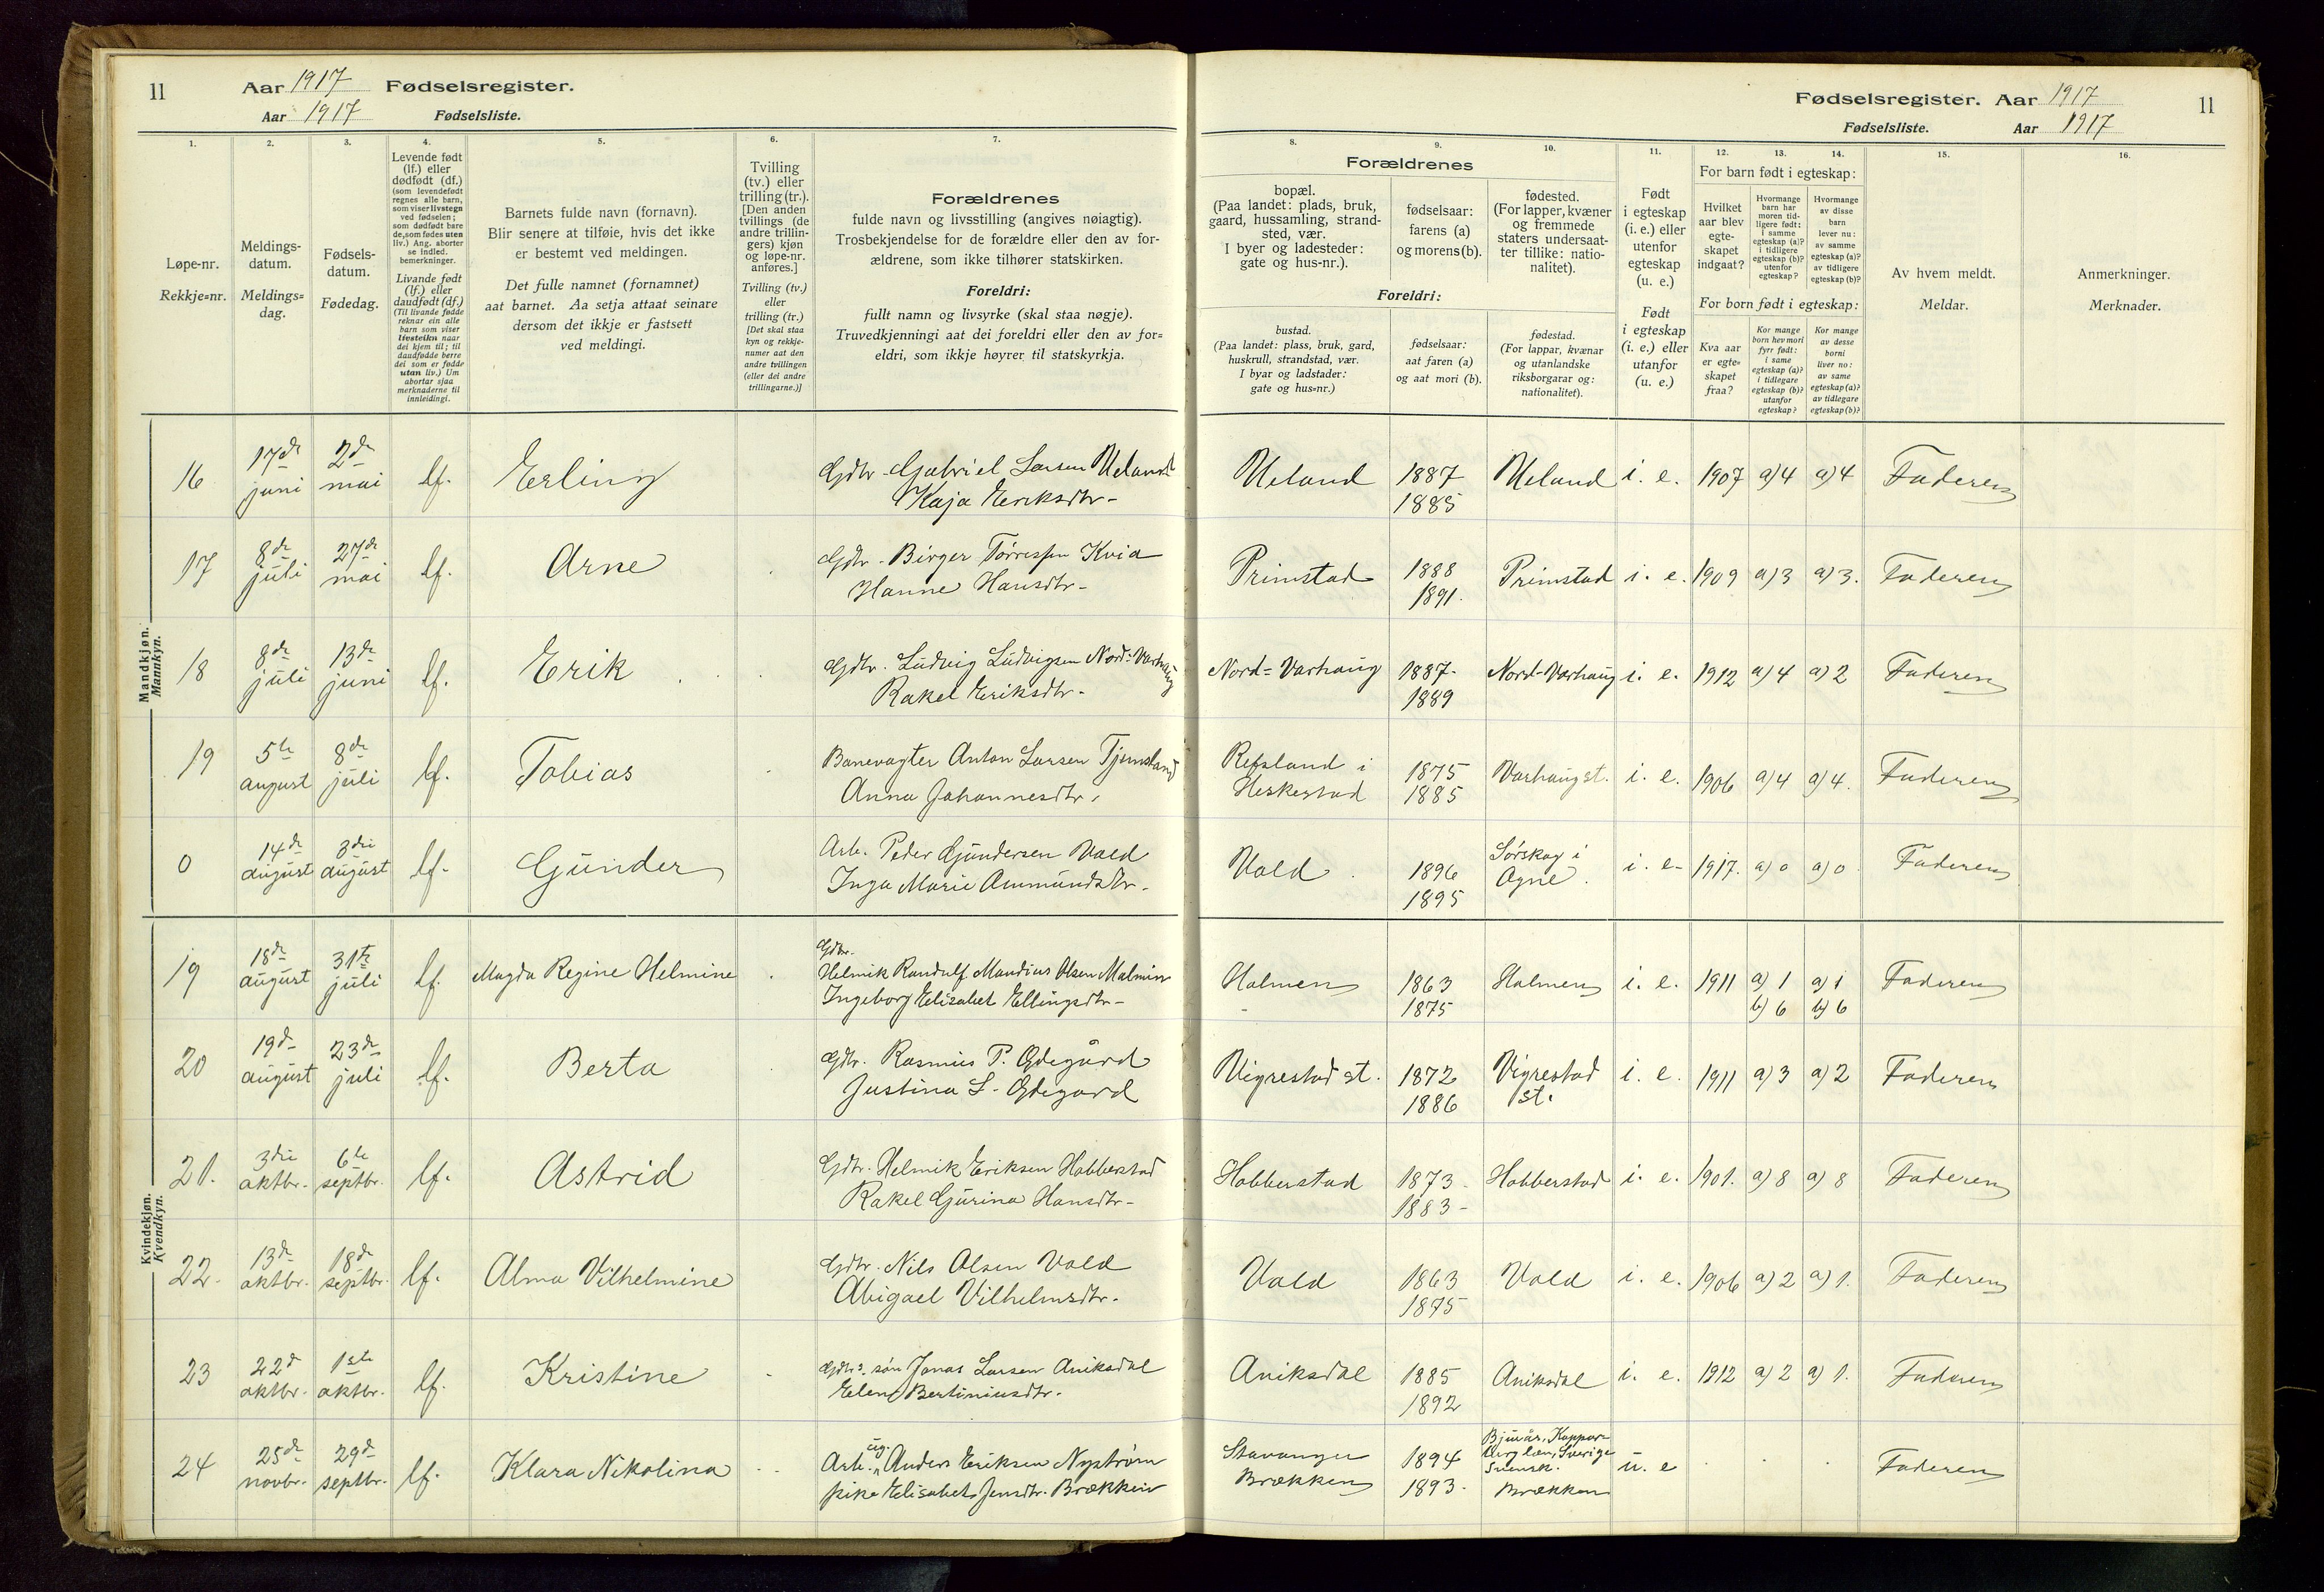 11 Aar 1917 Fødselsregister.
Aar 1917 Fødselsliste.
Fødselsregister. Aar 1917 11
Fødselsliste. Aar 1917
1. 2. 3. 4. 5. 6. 7.
Løpe-nr.
Rekkje=nr.
Meldings-
datum.
Meldings=
dag.
Fødsels-
datum.
Fødedag.
Levende født
(lf.) eller
dødfødt (df.)
(som levendefødt
regnes alle barn,
som viser livstegn
ved fødselen;
som dødfødt bare
de, som fødes uten
liv.) Ang. aborter
se indled.
bemerkninger.
Livande født
(lf.) eller
daudfødt (df.)
(Til livande fødde
reknar ein alle
barn som viser
livsteikn naar
dei kjem til; til
daudfødde berre
dei som er fødde
utan liv.) Um
abortar sjaa
merknaderne til
innleidingi.
Barnets fulde navn (fornavn).
Blir senere at tilføie, hvis det ikke
er bestemt ved meldingen.
Det fulle namnet (fornamnet)
aat barnet. Aa setja attaat seinare
dersom det ikkje er fastsett
ved meldingi.
Tvilling
(tv.) eller
trilling (tr.).
[Den anden
tvillings (de
andre trillin-
gers) kjøn
og løpe-nr.
anføres.]
Tvilling (tv.)
eller
trilling (tr.)
[Det skal staa
kyn og rekkje-
numer aat den
andre tvillingen
(eller dei andre
trillingarne.)]
Forældrenes
fulde navn og livsstilling (angives nøiagtig).
Trosbekjendelse for de forældre eller den av for-
ældrene, som ikke tilhører statskirken.
Foreldri:
fullt namn og livsyrke (skal staa nøgje).
Truvedkjenningi aat dei foreldri eller den av for=
eldri, som ikkje høyrer til statskyrkja.
8. 9. 10. 11. 12. 13. 14. 15. 16.
Forældrenes
bopæl.
(Paa landet: plads, bruk,
gaard, hussamling, strand-
sted, vær.
I byer og ladesteder:
gate og hus-nr.).
fødselsaar:
farens (a)
og morens (b).
fødested.
(For lapper, kvæner
og fremmede
staters undersaat-
ter tillike: natio-
nalitet).
Foreldri:
bustad.
(Paa landet: plass, bruk, gard,
huskrull, strandstad, vær.
I byar og ladstader:
gate og hus=nr.)
fødselsaar:
aat faren (a)
og aat mori (b).
fødestad.
(For lappar, kvænar
og utanlandske
riksborgarar og:
nationalitet).
Født
i egteskap
(i. e.) eller
utenfor
egteskap
(u. e.)
Født
i egteskap
(i. e.) eller
utanfor
(u. e.)
For barn født i egteskap:
Hvilket
aar blev
egte-
skapet
indgaat?
Hvormange
barn har
moren tid-
ligere født:
i samme
egteskap (a)?
i tidligere
egteskap (b)?
utenfor
egteskap?
Hvormange
av disse
barn
lever nu:
av samme
egteskap (a)?
av tidligere
egteskap (b)?
For born født i egteskap:
Kva aar
er egte=
skapet
fraa?
Kor mange
born hev mori
fyrr født:
i same
egteskap (a)?
i tidlegare
egteskap (b)?
utanfor
egteskap?
Kor mange
av desse
borni
liver no:
av same
egteskap (a)?
av tidlegare
egteskap (b)?
Av hvem meldt.
Meldar.
Anmerkninger.
Merknader.
Mandkjøn.
Mannkyn.
16 17de juni 2de mai lf. Erling Gdbr. Gabriel Larsen Ueland Ueland 1887 Ueland i. e. 1907 a) 4 a) 4 Faderen
Kaja Eriksdtr. 1885
17 8de juli 27de mai lf. Arne Gdbr. Birger Tørressen Kvia Primstad 1888 Primstad i. e. 1909 a) 3 a) 3. Faderen
Hanne Hansdtr. 1891.
18 8de juli 13de juni lf. Erik Gdbr. Ludvig Ludvigsen Nord=Varhaug Nord=Varhaug 1887. Nord-Varhaug i. e. 1912 a) 4 a) 2 Faderen
Rakel Eriksdtr. 1889
19 5te august 8de juli lf. Tobias Banevagter Anton Larsen Tjemsland Refsland i 1875 Varhaug st. i. e. 1906 a) 4 a) 4. Faderen
Anna Johannesdtr. Heskestad 1885
0 14de august 3die august lf. Gunder Arb. Peder Gundersen Vold Vold 1896 Sørskog i Ogne. i. e. 1917. a) 0 a) 0 Faderen
Inga Marie Ammundsdtr. 1895
Kvindekjøn.
Kvendkyn.
19 18de august 31te juli lf. Magda Regine Helmine Gdbr.
Helmik Randulf Maudius Olsen Malmin Holmen 1863 Holmen i. e. 1911 a) 1 a) 1 Faderen
Ingeborg Elisabet Ellingsdtr. 1875 b) 6 b) 6
20 19de august 23de juli lf. Berta Gdbr. Rasmus P. Ødegård Vigrestad st. 1872 Vigrestad st. i. e. 1911 a) 3 a) 2 Faderen
Justina L. Ødegård 1886
21. 3die oktbr. 6te septbr. lf. Astrid Gdbr. Helmik Eriksen Hobberstad Hobberstad 1873 Hobberstad i. e. 1901. a) 8 a) 8 Faderen
Rakel Gurina Hansdtr. 1883
22. 13de oktbr. 18de septbr. lf. Alma Vilhelmine Gdbr. Nils Olsen Vold Vold 1863 Vold i. e. 1906 a) 2 a) 1. Faderen
Abigael Vilhelmsdtr. 1875
23 22d oktbr. 1ste oktbr. lf. Kristine Gdbr.s søn Jonas Larsen Aniksdal Aniksdal 1885 Aniksdal i. e. 1912 a) 2 a) 1. Faderen
Elen Bertiniusdtr. 1892
24 25de novbr. 29de septbr. lf. Klara Nikolina Arb. ug. Anders Eriksen Nystrøm Stavanger 1894 Bjurås, Koppar=
berg læn, Sverige
Svensk. u. e Faderen
pike Elisabet Jensdtr. Brækken Brækken 1893. Brækken